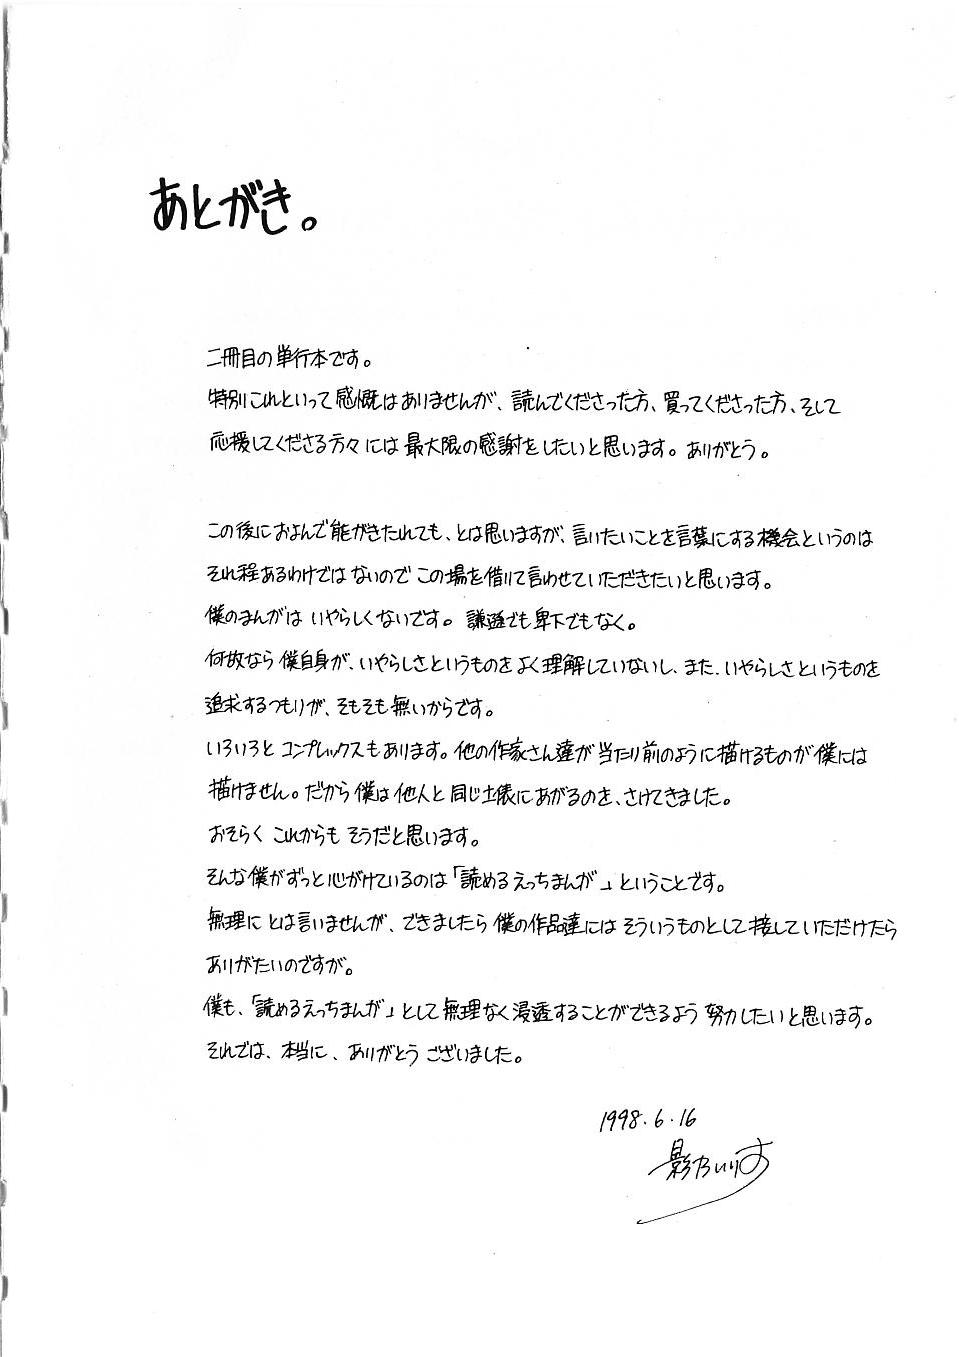 あとがき。
二冊目の単行本です。
特別これといって感慨はありませんが、読んでくださった方、買ってくださった方、そして
応援してくださる方々には最大限の感謝をしたいと思います。ありがとう。
この後におよんで能がきたれても、とは思いますが、言いたいことを言葉にする機会というのは
それ程あるわけではないのでこの場を借りて言わせていただきたいと思います。
僕のまんがはいやらしくないです。謙遜でも卑下でもなく。
何故なら僕自身が、いやらしさというものをよく理解していないし、また、いやらしさというものを
追求するつもりが、そもそも無いからです。
いろいろとコンプレックスもあります。他の作家さん達が当たり前のように描けるものが僕には
描けません。だから僕は他人と同じ土俵にあがるのを、さけてきました。
おそらくこれからもそうだと思います。
そんな僕がずっと心がけているのは「読めるえっちまんが」ということです。
無理にとは言いませんが、できましたら僕の作品達にはそういうものとして接していただけたら
ありがたいのですが。
僕も、「読めるえっちまんが」として無理なく浸透することができるよう努力したいと思います。
それでは、本当に、ありがとうございました。
1998.6.16
影乃いりす